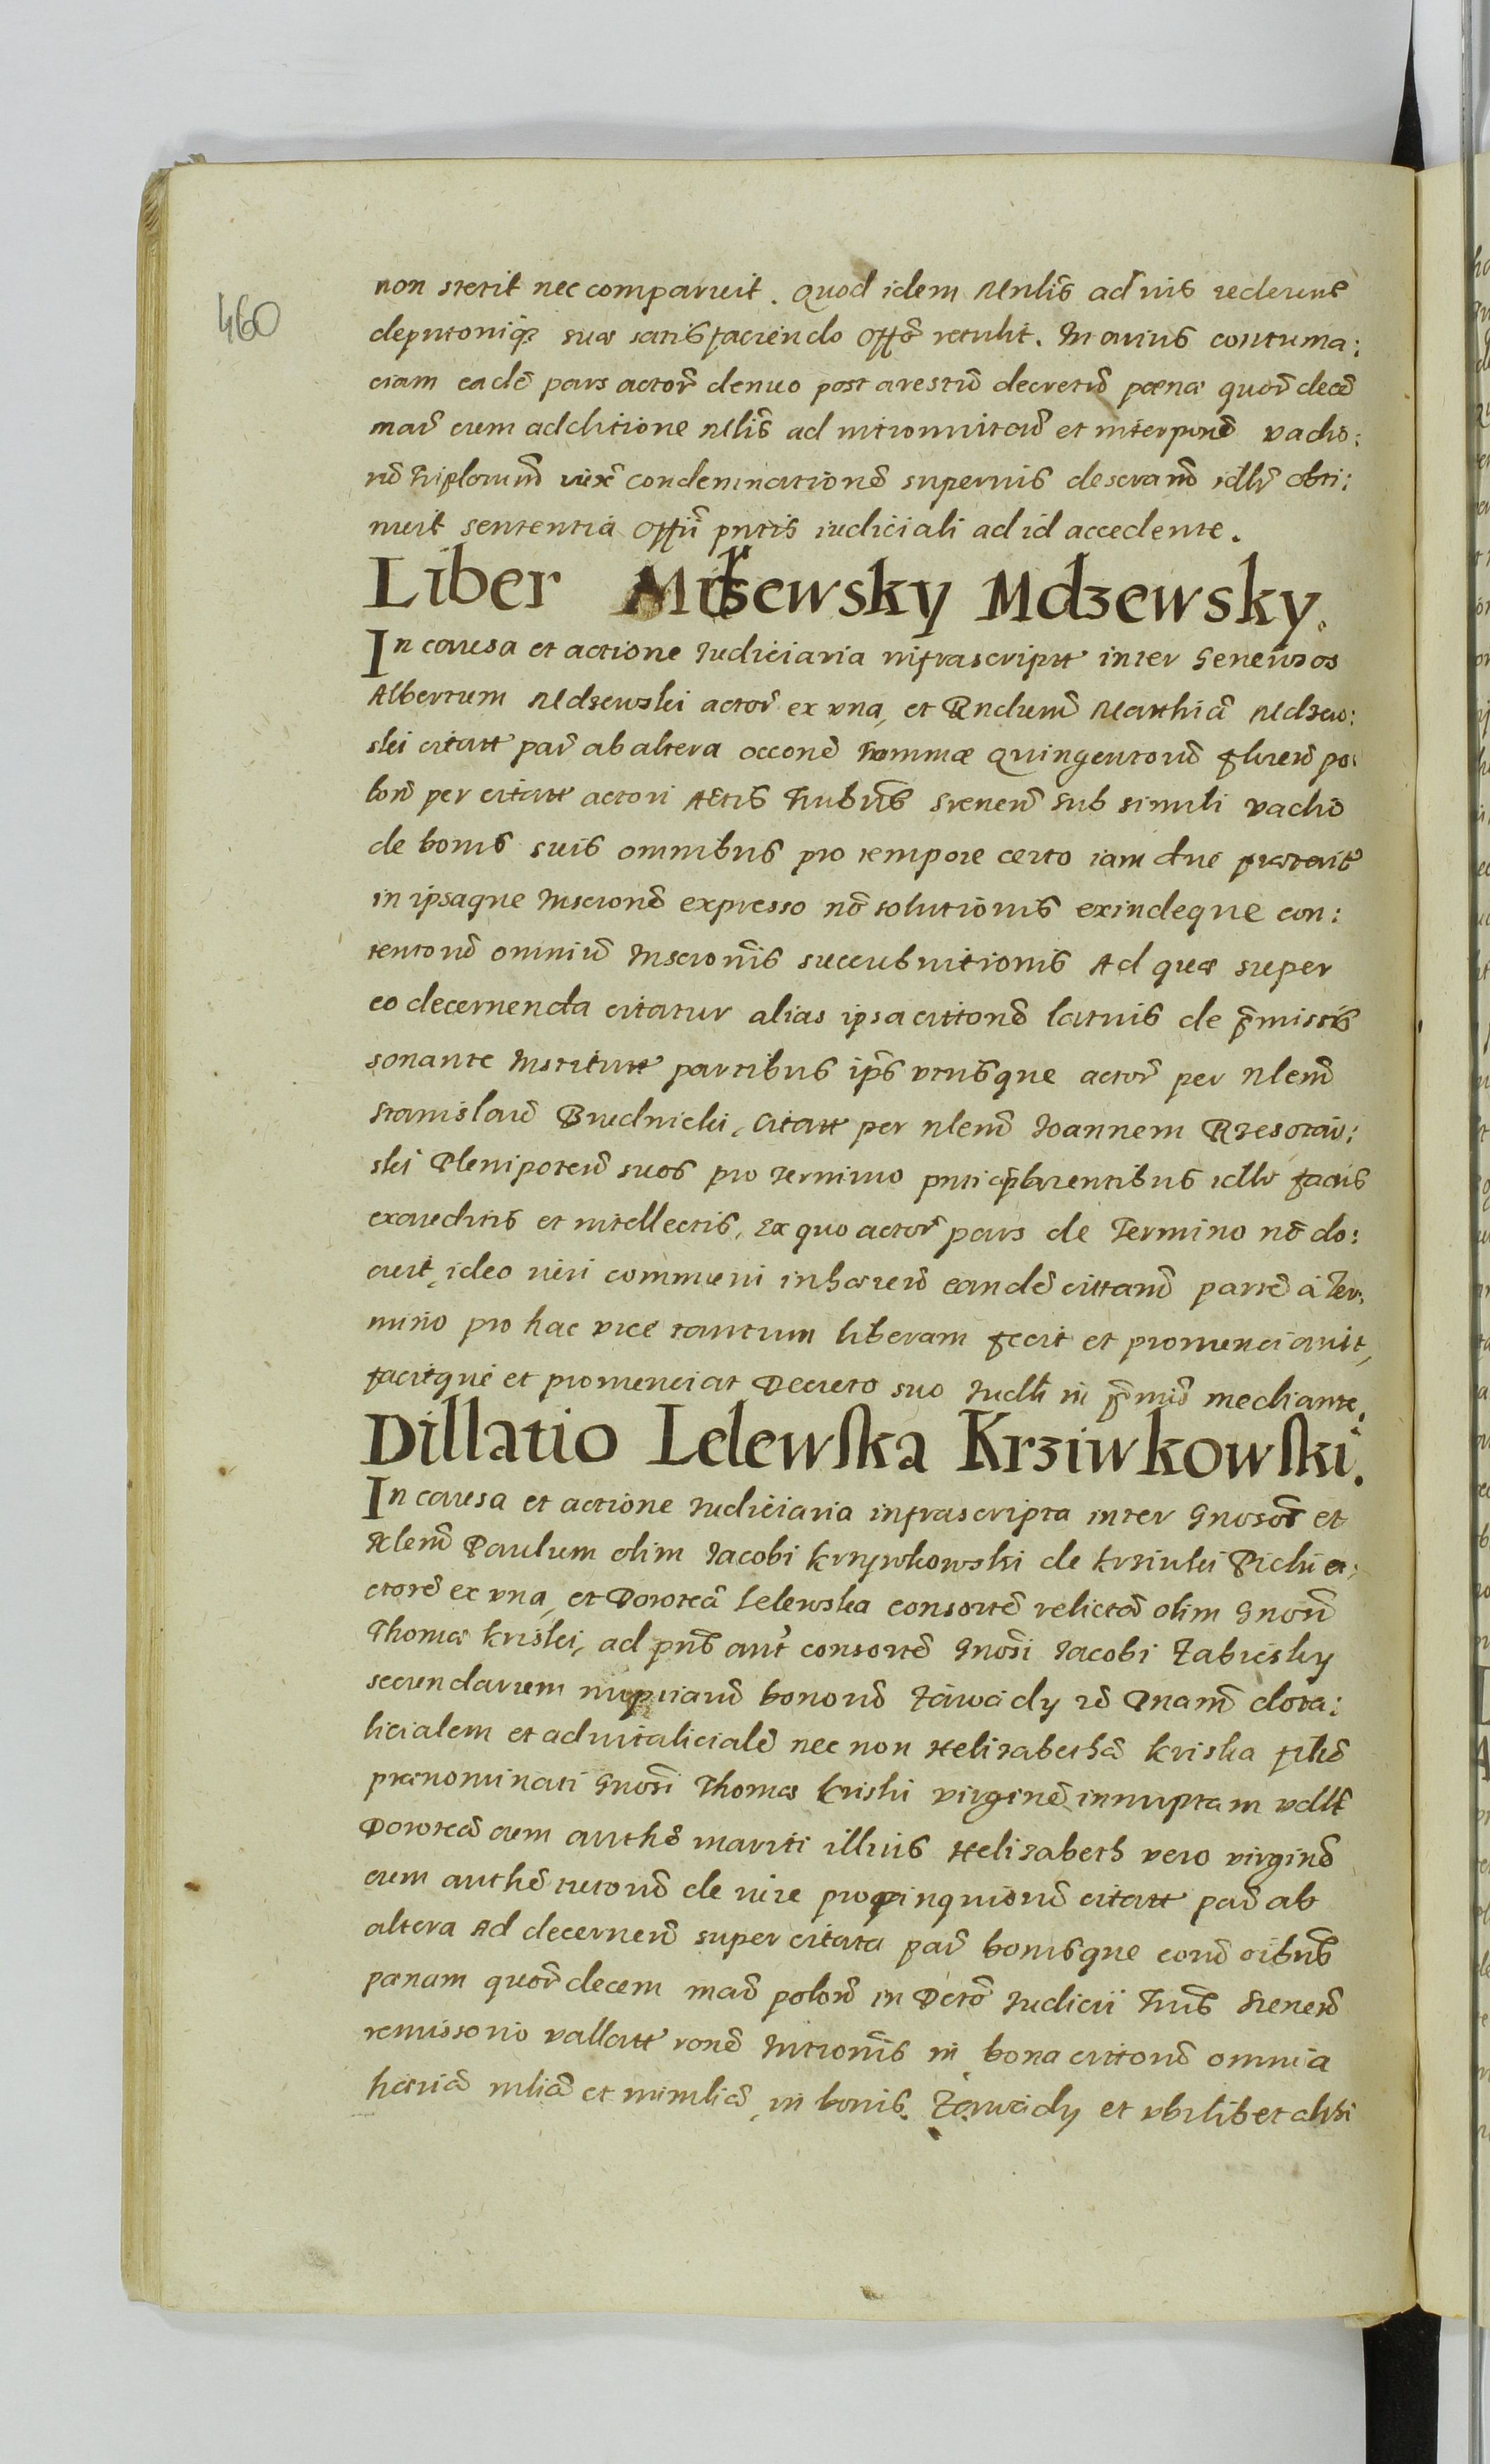 460
non stetit nec comparuit. Quod idem Mnlis ad nis redeune
deputoniq suæ satisfaciendo Offo retulit. In cuius contuma:
ciam eadē pars actor denuo post arestū decretū pœnæ quōr decē
mar cum additione Mlis ad intromittend et interponē vadio:
rū triplorum iux condemnationē superius descrand idlr obti:
nuit sententia Offii pntis iudiciali ad id accedente.
Liber Mdsewsky Mdzewsky.
In causa et actione Iudiciaria infrascriptt inter Generosos
Albertum Mdzewski actor ex vna, et Rndum Matthiā Mdzew:
ski citatt par ab altera occone summæ Quingentorū floren po:
lon per citatt actori Actis Trnsbus Srenen sub simili vadio
de bonis suis omnibus pro tempore certo iam due præterit
in ipsaque Inscrone expresso nō solutionis exindeque con:
tentorū omniū Inscronis succubuitionis Ad quæ super
eo decernenda citatur alias ipsa cittone latius de pmissis
sonante Instituтt partibus ips vtrisque actor per Nlem
Stanislaū Brudnicki, Citatt per Nlem Ioannem Rzeszotar:
ski Plenipoten suos pro termino pnti cparentibus idlr factis
exauditis et intellectis, Ex quo actor pars de Termino nō do:
cuit, ideo iuri communi inhæren eandē cittam partē a Ter:
mino pro hac vice tantum liberam fecit et pronunciavit,
facitque et pronunciat Decreto suo Iudli in pmis mediante.
Dillatio Lelewska Krziwkowski.
In causa et actione Iudiciaria infrascripta inter Gnosos et
Nlem Paulum olim Iacobi Krzywkowski de Krziwki Pichi a:
ctorē ex vna, et Doroteā Lelewska consortē relictā olim Gnosi
Thomæ Kriski, ad pns aut consortē Gnosi Iacobi Zabieski
secundarum nuptiarū bonorū Zawady rē Dnam dota:
licialem et aduitalicialē nec non Helizabethā Kriska filiā
prænominati Gnosi Thomæ Kriski virginē innuptam vdllt
Doroteā cum authē mariti illius Helizabeth vero virginē
cum authē tutorū de iure propinquiorū citatt par ab
altera Ad decernen super citata par bonisque eorū oibus
pœnam quōr decem mar polon in Dcto Iudicii Trns Srenen
remissorio vallatt rone Intronis in bona cittorū omnia
hæria mlia et inmlia, in bonis Zawady et vbilibet alibi